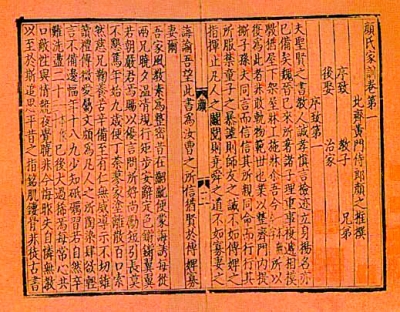 顏氏家訓卷第一
北齊黃門侍郎顏之推撰
序致 教子 兄弟
後娶 治家
序致第一
夫聖賢之書教人誠孝慎言檢迹立身揚名亦
已備矣魏晉已來所著諸子理重事複遞相模
斅猶屋下架屋牀上施牀爾吾今所以
復為此者非敢軌物範世也業以整齊門內提
撕子孫夫同言而信信其所親同命而行行其
所服禁童子之暴謔則師友之誡不如傅婢之
指揮止凡人之鬭鬩則堯舜之道不如寡妻之
誨諭吾望此書為汝曹之所信猶賢於傅婢寡
妻爾
吾家風教素為整密昔在齠齔便蒙誨誘每從
兩兄曉夕溫凊規行矩步安辭定色鏘鏘翼翼
若朝嚴君焉賜以優言問所好尚勵短引長莫
不懇篤年始九歲便丁荼蓼家塗離散百口索
然慈兄鞠養苦辛備至有仁無威導示不切雖
讀禮傳微愛屬文頗為凡人之所陶染肆欲輕
言不備邊幅年十八九少知砥礪習若自然卒
難洗盪二十已後大過稀焉每常心共
口敵性與情競夜覺曉非今悔昨失自憐無教
以至於斯追思平昔之指銘肌鏤骨非徒古書